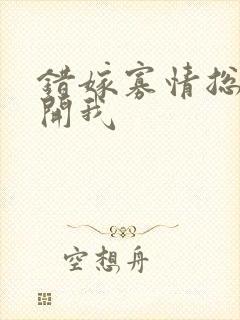 错嫁寡情总
開我
空想舟